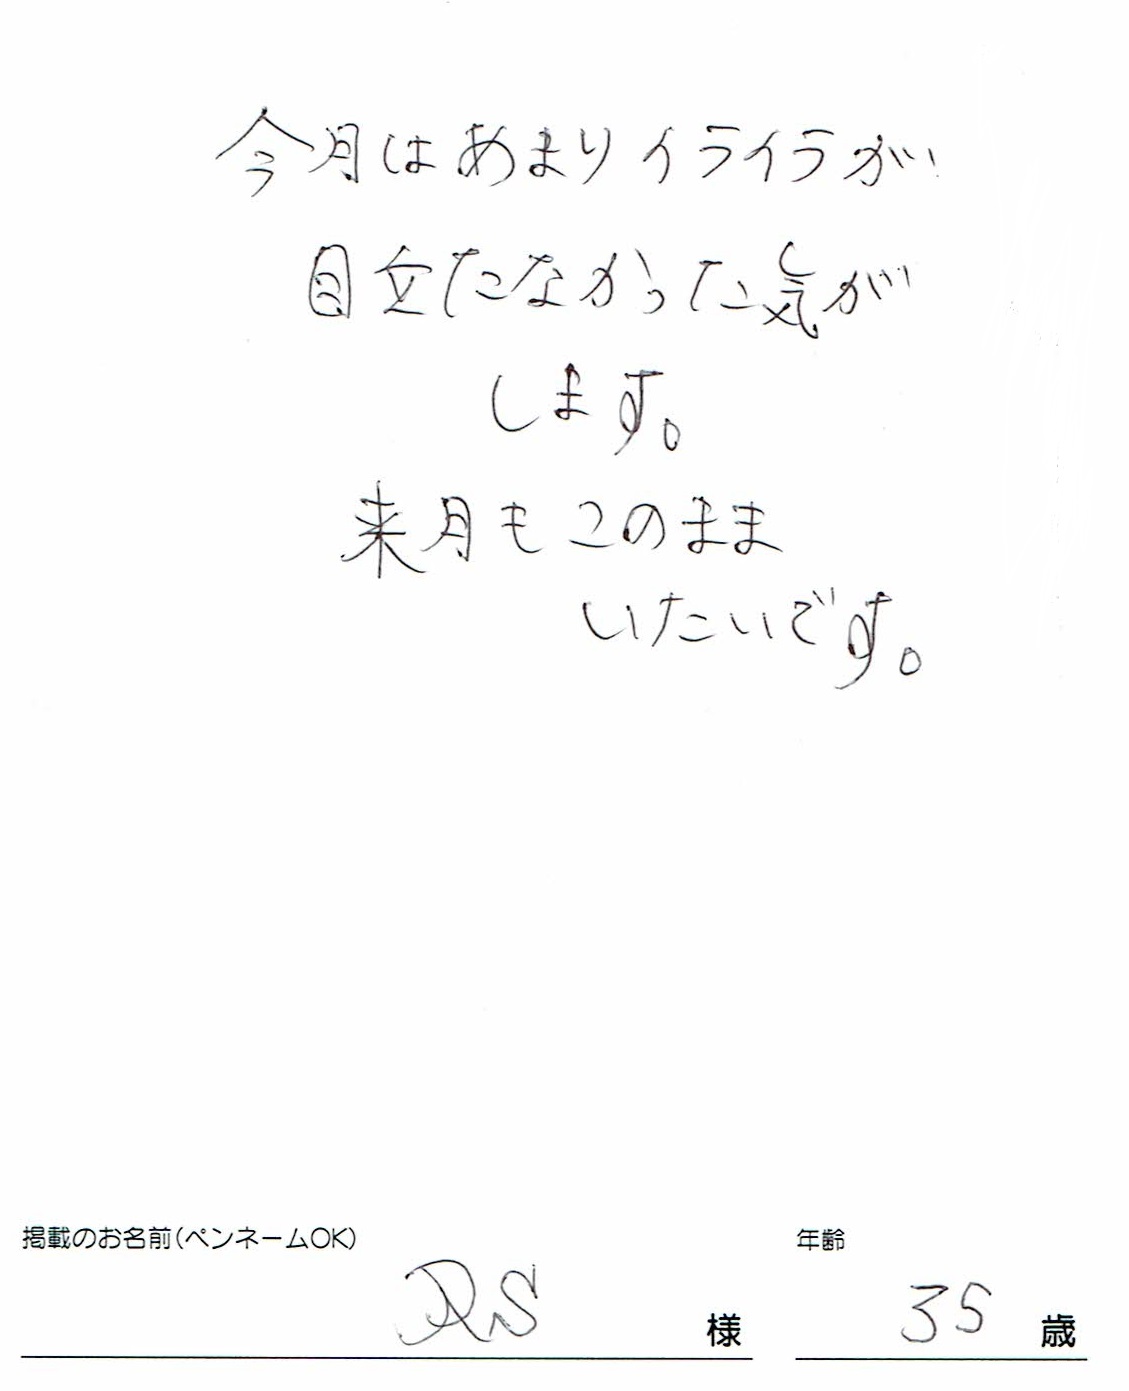 今月はあまりイライラが
目立たなかった気が
します。
来月もこのまま
いたいです。
掲載のお名前(ペンネームOK) 年齢
RS 様 35 歳